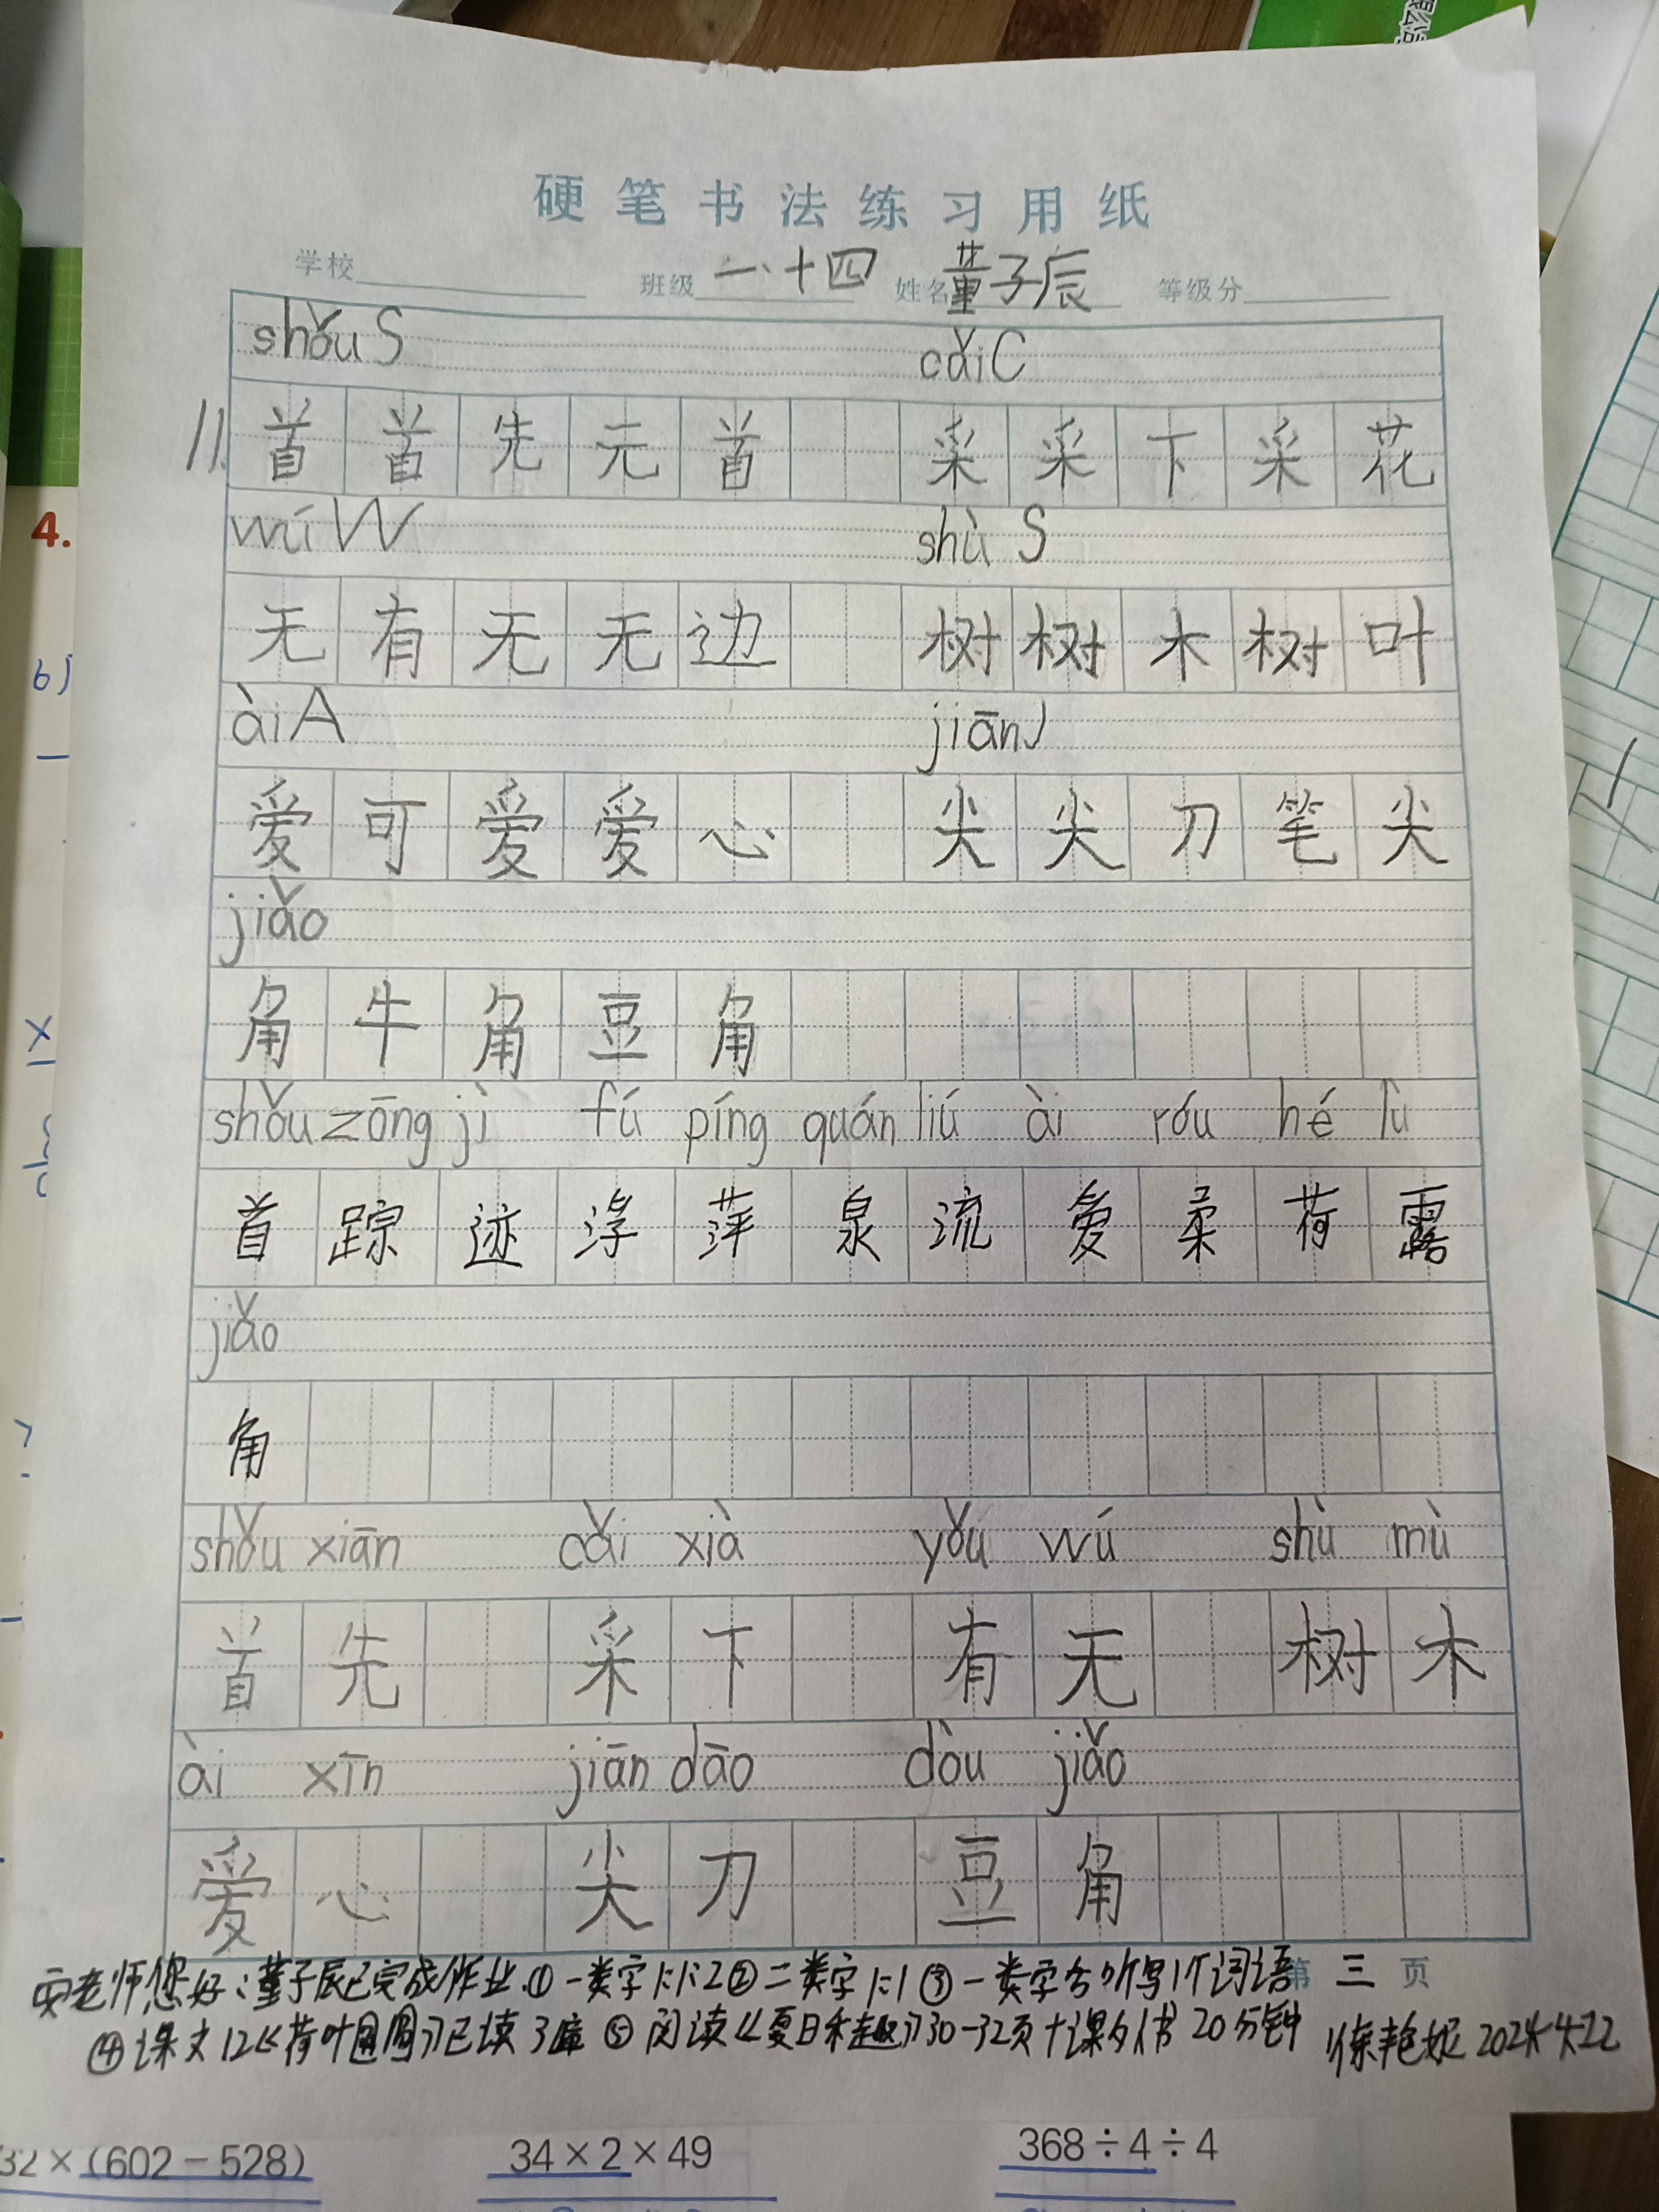 硬笔书法练习用纸
学校 班级 一、十四 姓名 董子辰 等级分
shǒu S cǎi C
11. 首 首 先 元 首 采 采 下 采 花
wú W shù S
无 有 无 无 边 树 树 木 树 叶
ài A jiān J
爱 可 爱 爱 心 尖 尖 刀 笔 尖
jiǎo
角 牛 角 豆 角
shǒu zōng jì fú píng quán liú ài róu hé lù
首 踪 迹 浮 萍 泉 流 爱 柔 荷 露
jiǎo
角
shǒu xiān cǎi xià yǒu wú shù mù
首 先 采 下 有 无 树 木
ài xīn jiān dāo dòu jiǎo
爱 心 尖 刀 豆 角
第 三 页
老师您好:董子辰已完成作业.①一类字卡12②二类字卡1③一类字各听写1个词语
④课文12《荷叶圆圆》已读3遍⑤阅读《夏日乐趣》30-32页+课外书20分钟 2024.4.22
4.
32×(602-528) 34×2×49 368÷4÷4